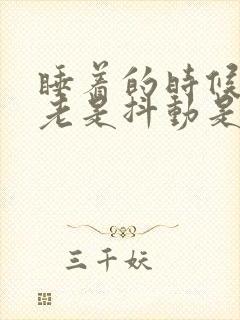 睡着的时候
老是抖动是
三千妖